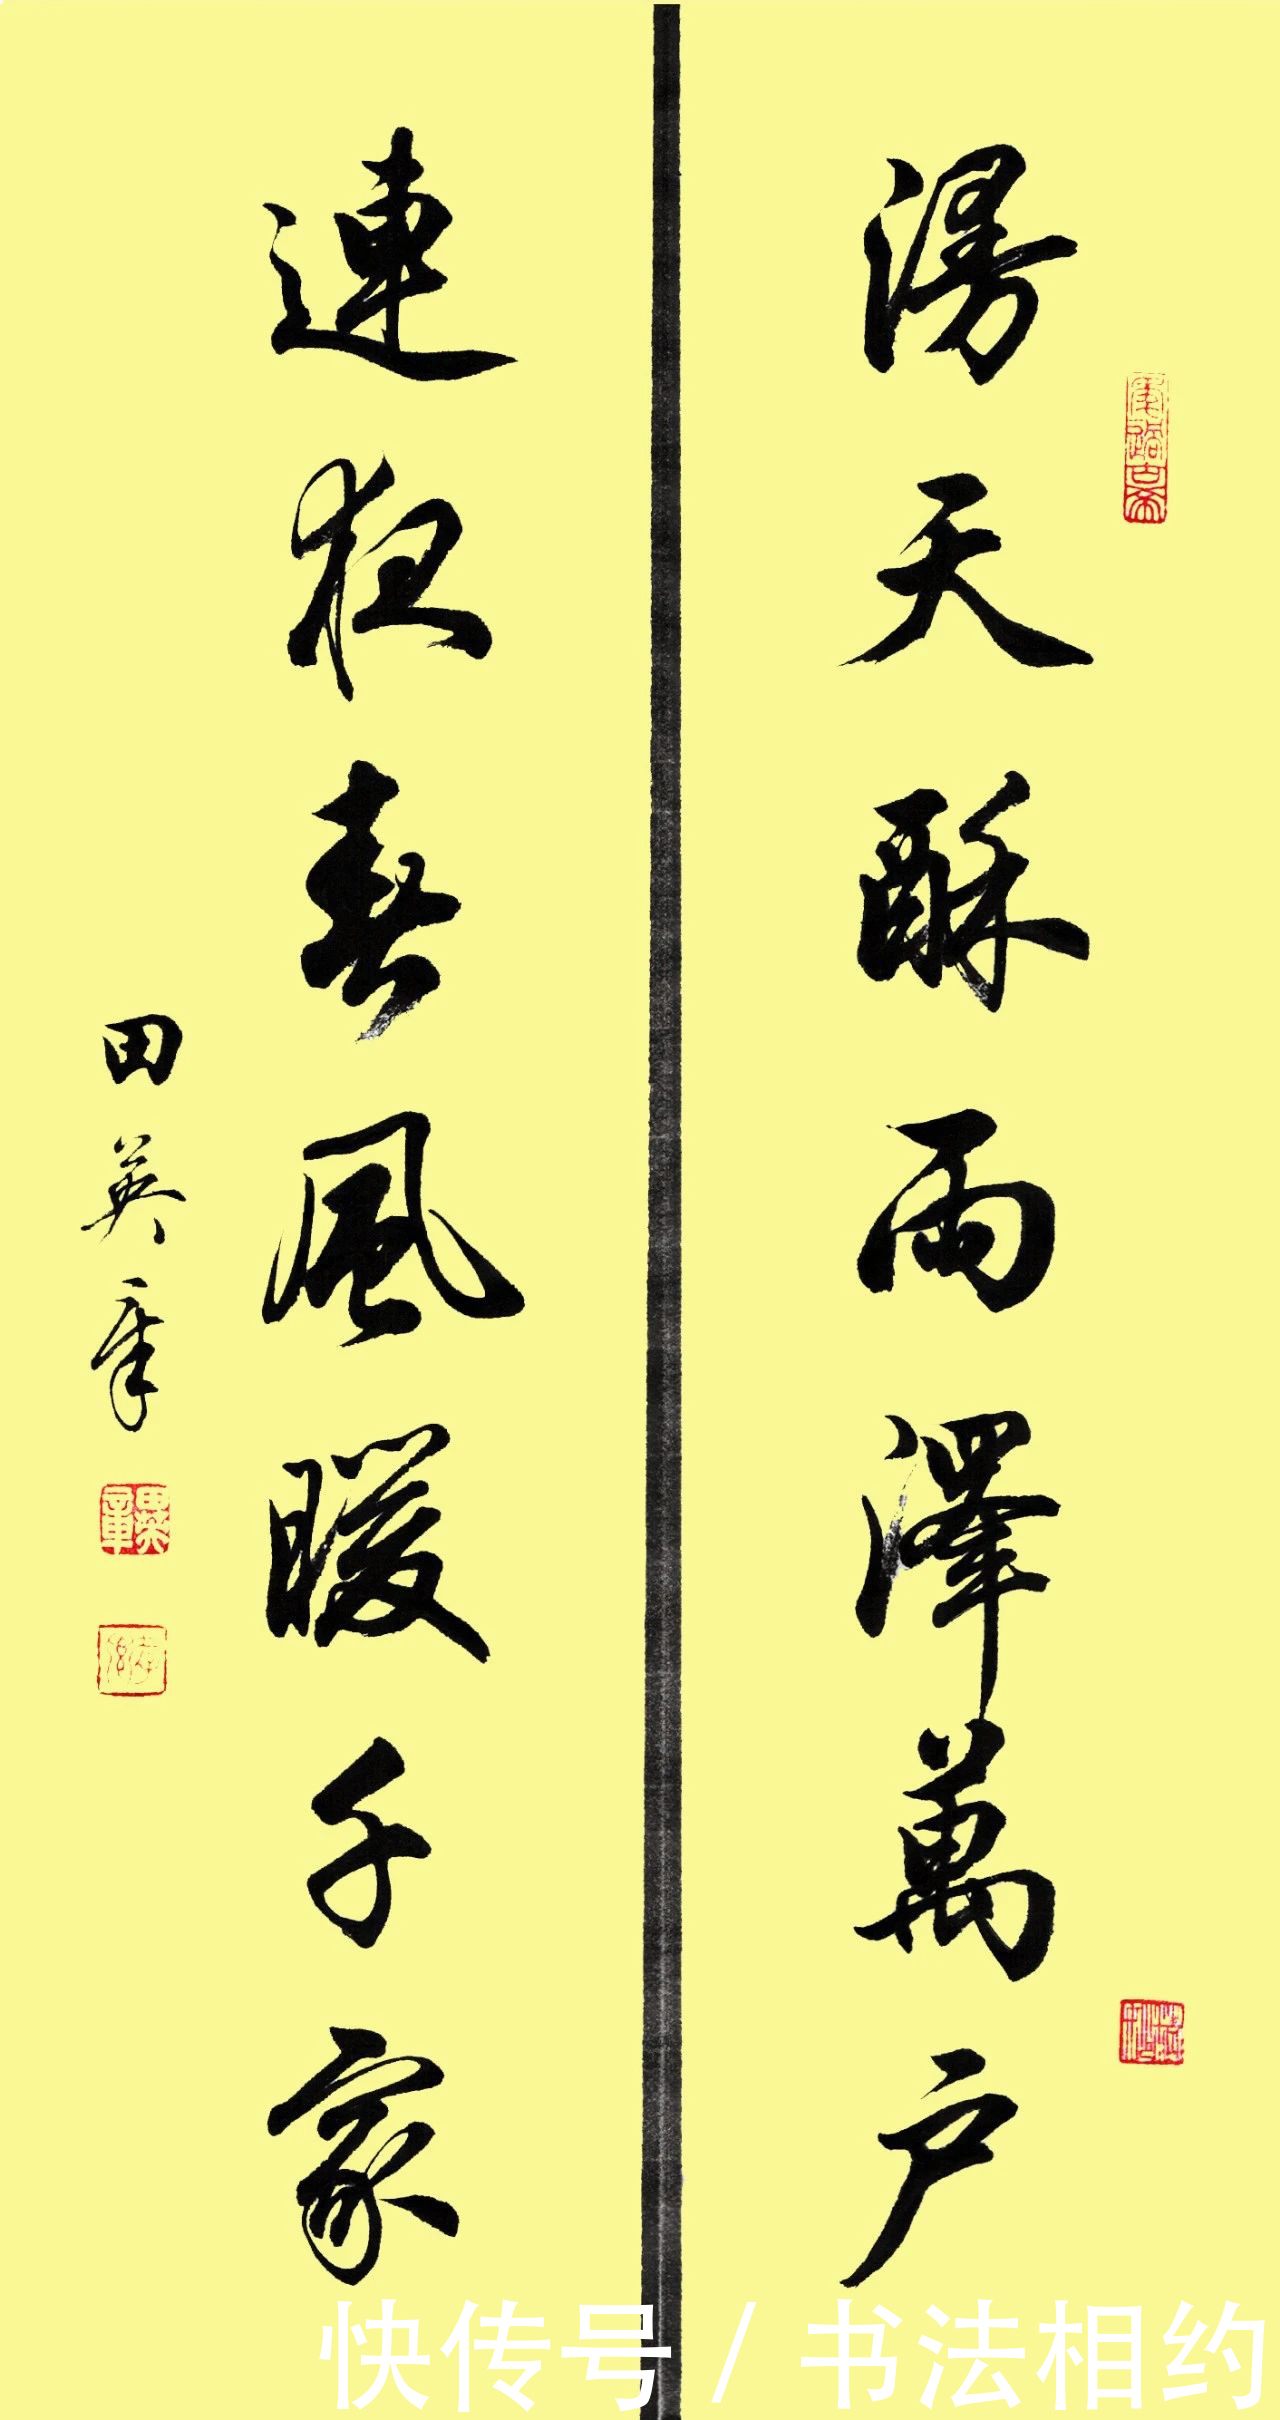 漫天酥雨澤萬户
連夜春風暖千家
田英章
田英章
快传号 / 书法相约